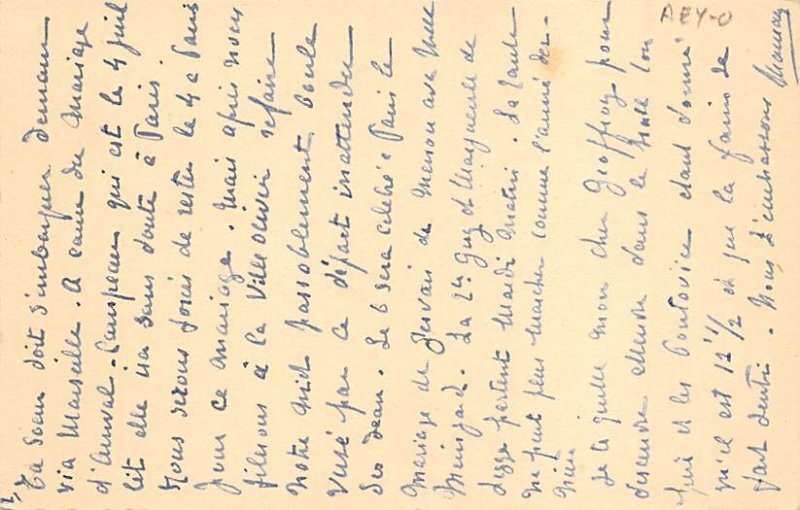 AEY-0
Ta soeur doit s'embarquer demain
via Marseille. A cause du mariage
d'Anival - qui est le 4 juil
let elle ira sans doute à Paris.
Nous serons forcés de rester le 4 à Paris
pour ce mariage. Mais après nous
filerons à la Villeolivier refaire
notre nid passablement boule
versé par ce départ inattendu
des Jean. Le 6 sera célébré à Paris le
mariage de Gervais de avec Melle
. La Guy et Marguerite de
partent Mardi matin. La tante
ne peut plus marcher comme l'année der-
nière
Je te quitte mon cher Geoffroy pour
descendre dans le hall ton
père et les étant donné
qu'il est 12h 1/2 et que la faim se
fait sentir. Nous t'embrassons Maman